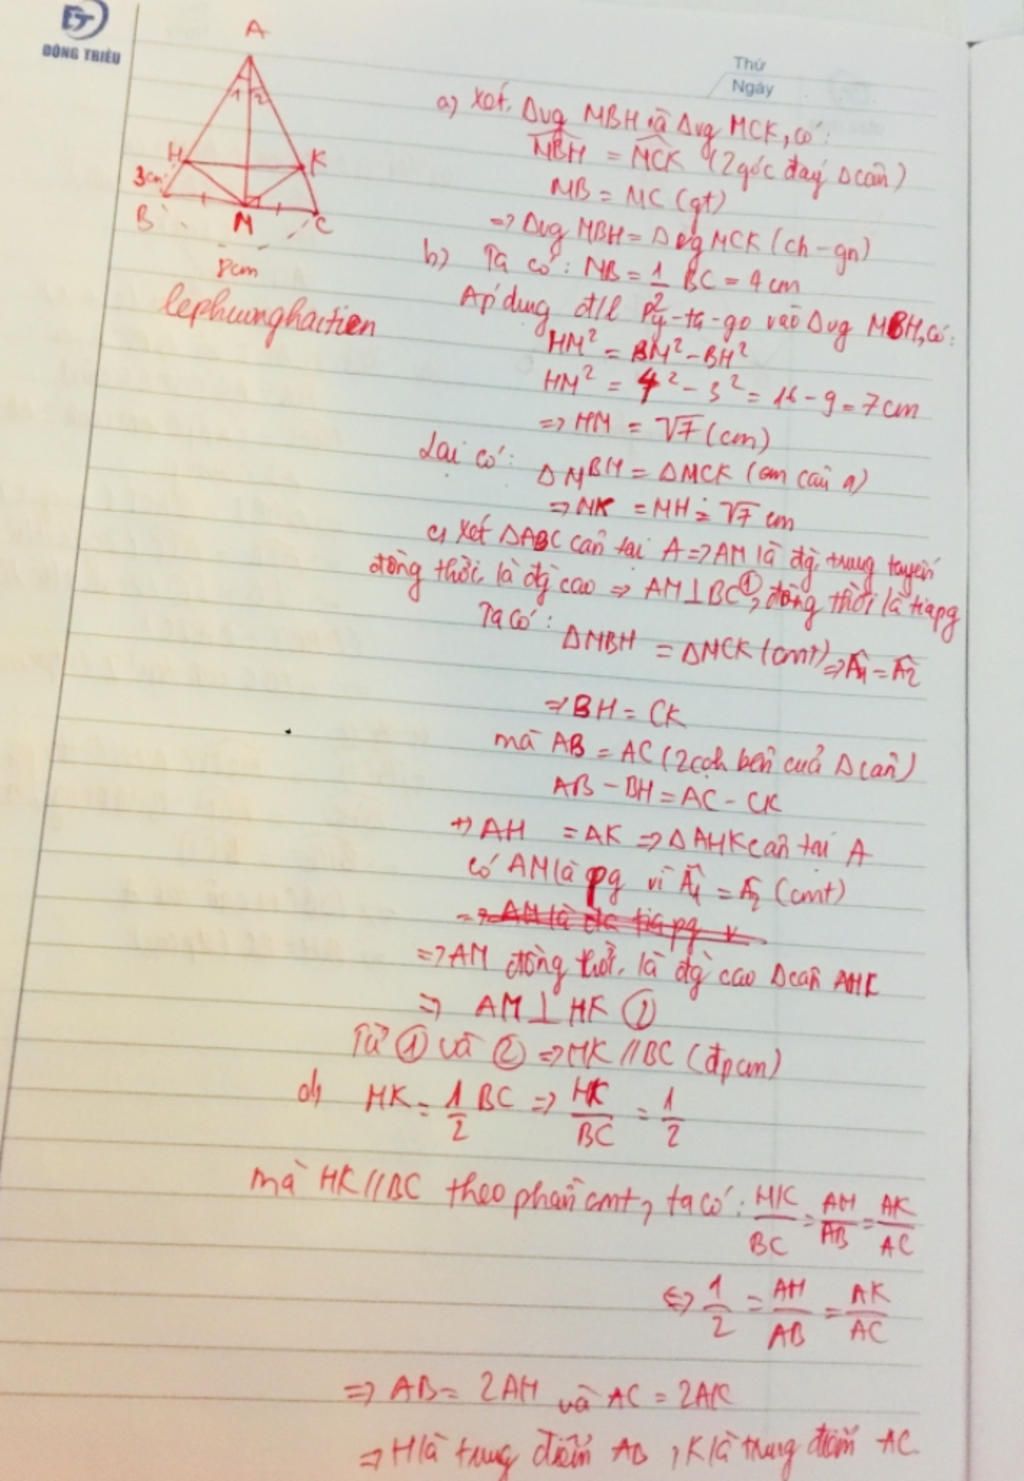 ĐÔNG TRIỀU
Thứ
Ngày
A
1 2
H K
3cm
B M C
8cm
lephuonghaitien
a) Xét Δvg MBH và Δvg MCK, có:
MBH = MCK (2 góc đáy Δ cân)
MB = MC (gt)
=> Δvg MBH = Δvg MCK (ch - gn)
b) Ta có: MB = 1/2 BC = 4 cm
Áp dụng đ/l Py-ta-go vào Δvg MBH, có:
HM² = BM² - BH²
HM² = 4² - 3² = 16 - 9 = 7 cm
=> HM = √7 (cm)
Lại có: ΔMBH = ΔMCK (cm câu a)
=> MK = MH = √7 cm
c) Xét ΔABC cân tại A => AM là đg trung tuyến
đồng thời là đg cao => AM ⊥ BC ①, đồng thời là tia pg
Ta có: ΔMBH = ΔMCK (cmt) => Â1 = Â2
=> BH = CK
mà AB = AC (2 cạh bên của Δ cân)
AB - BH = AC - CK
=> AH = AK => ΔAHK cân tại A
có AM là pg vì Â1 = Â2 (cmt)
=> AM đồng thời là đg cao Δ cân AHK
=> AM ⊥ HK ②
Từ ① và ② => HK // BC (đpcm)
d) HK = 1/2 BC => HK/BC = 1/2
mà HK // BC theo phần cmt, ta có: HK/BC = AH/AB = AK/AC
<=> 1/2 = AH/AB = AK/AC
=> AB = 2AH và AC = 2AK
=> H là trung điểm AB, K là trung điểm AC